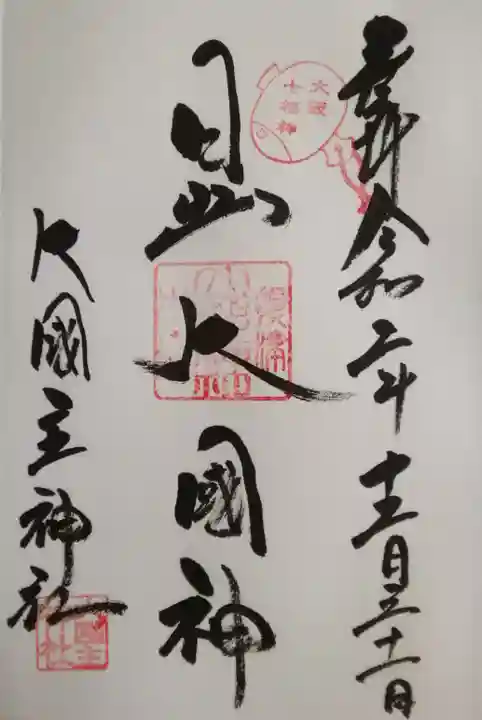 奉拝 令和二年 十二月三十一日
大阪
七福神
日出大國神
大國主神社